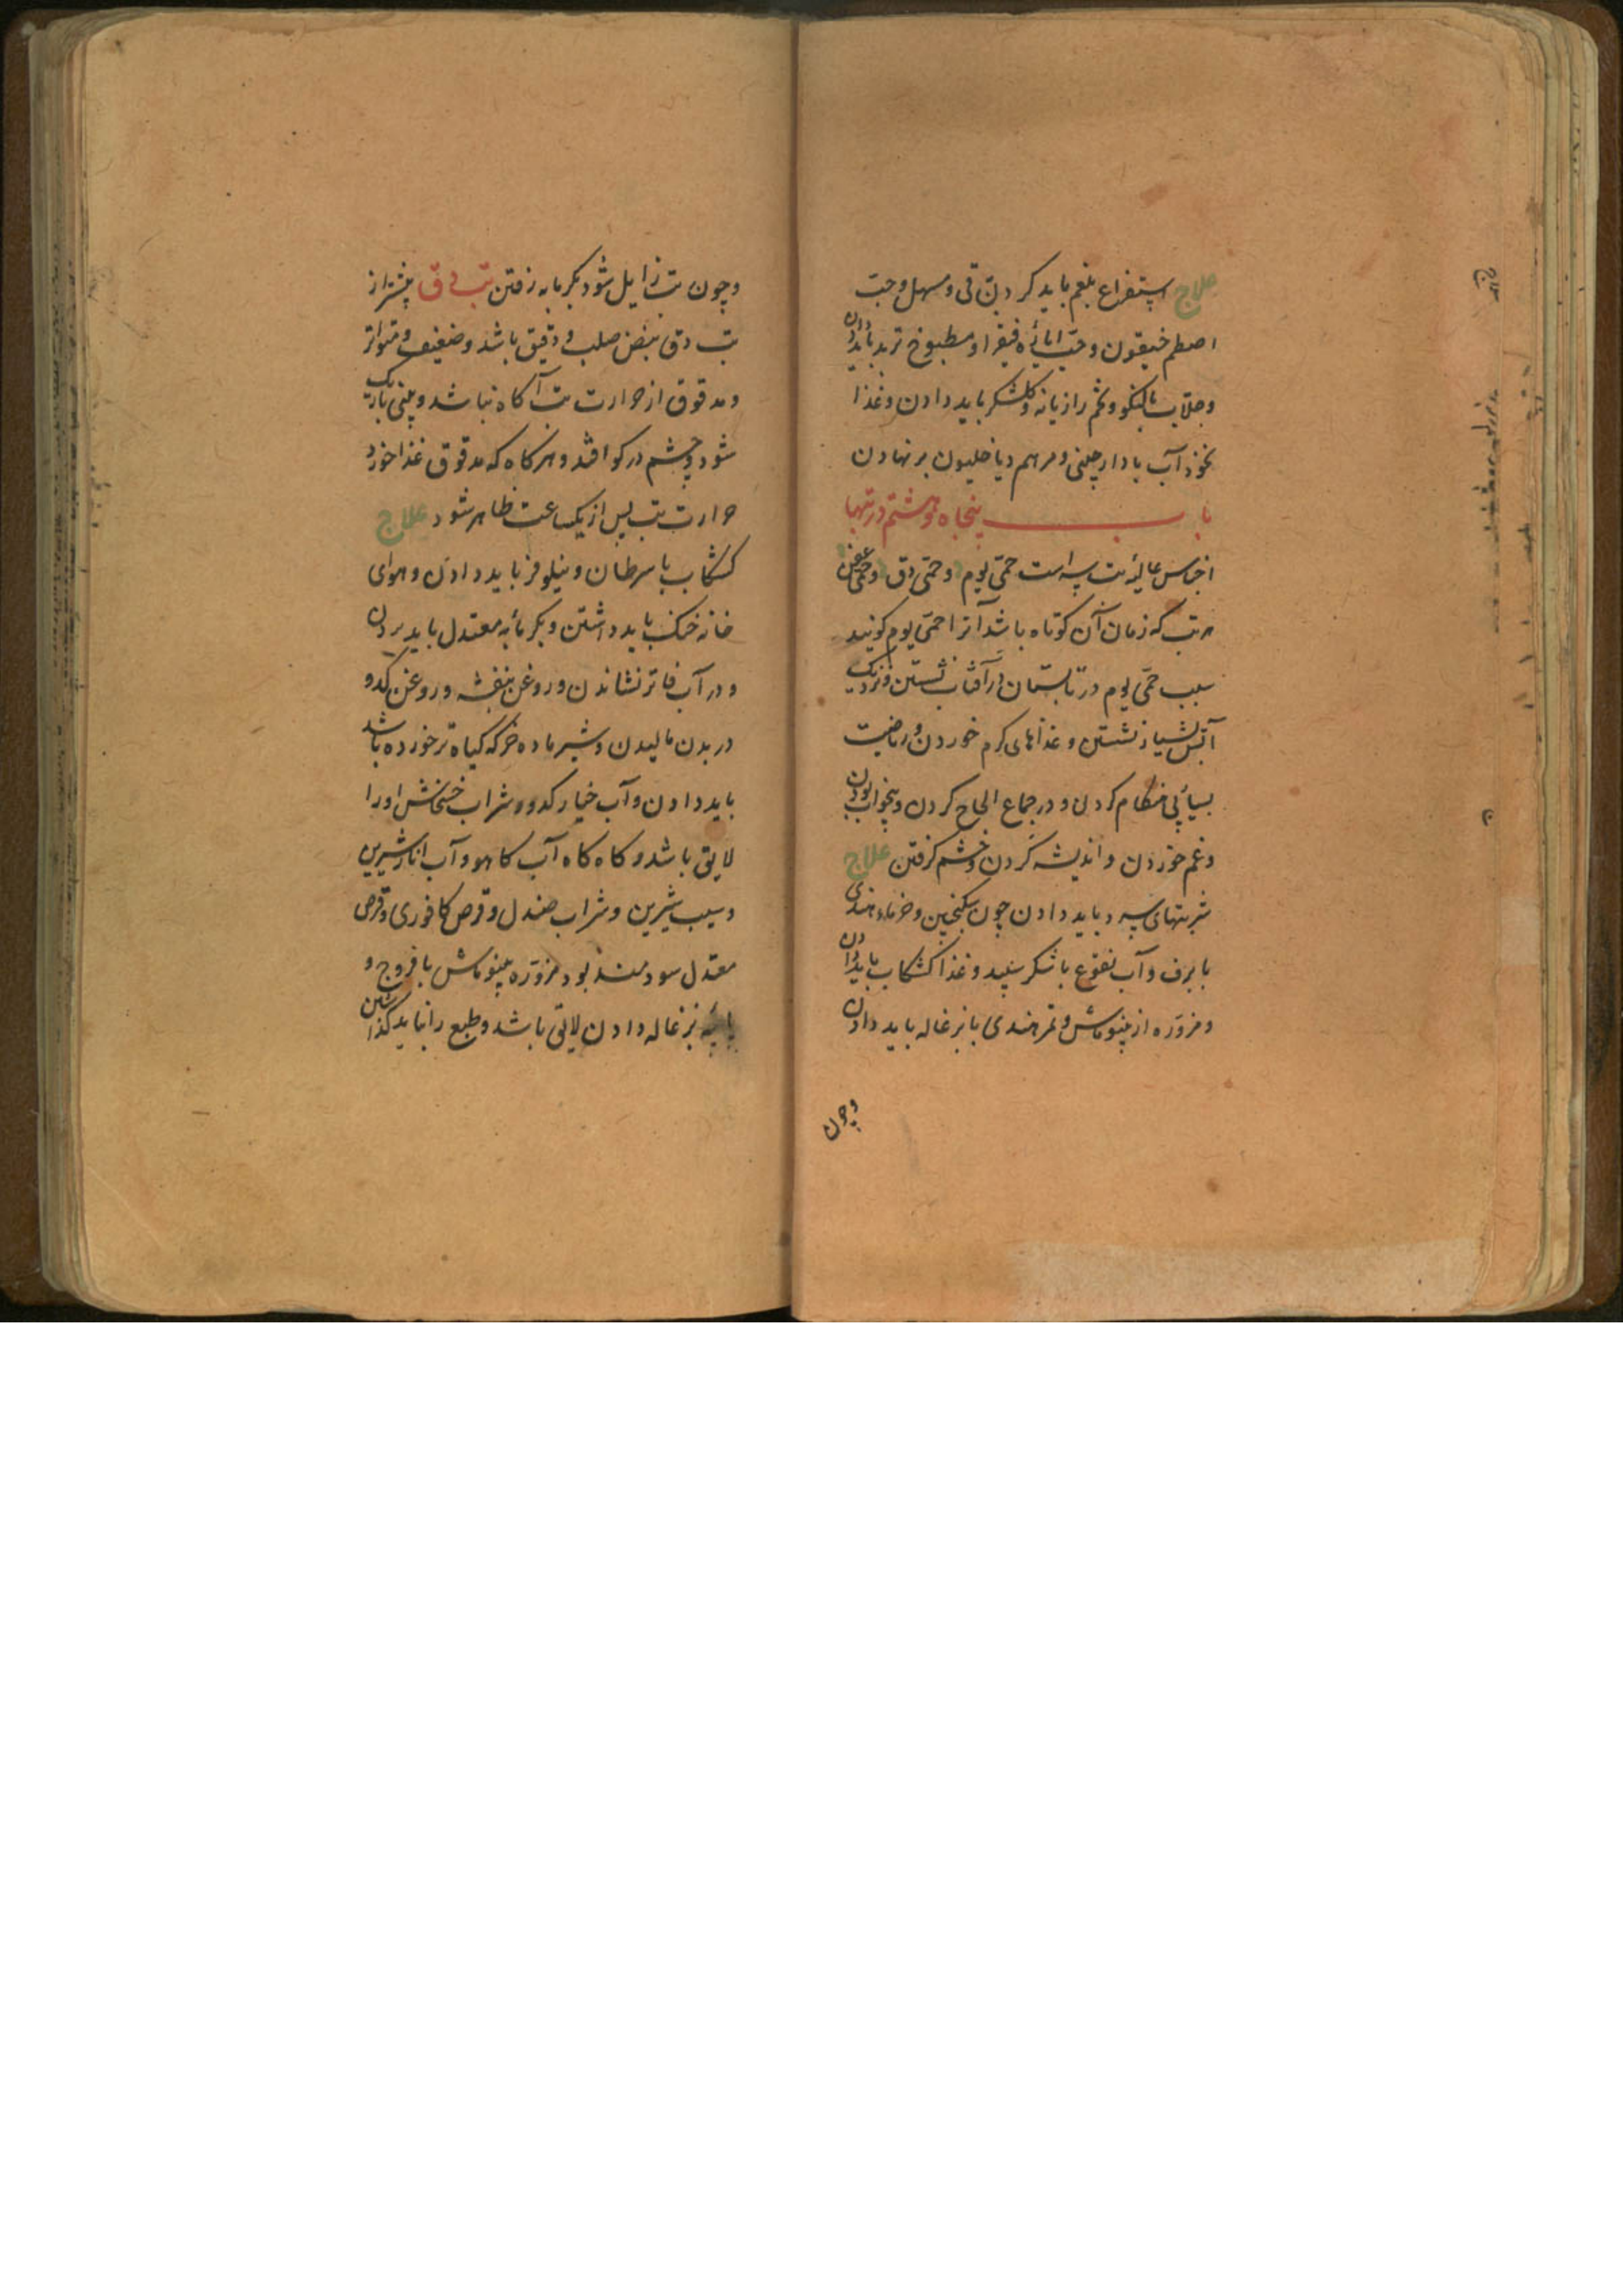 علاج استفراغ بلغم باید کرد بقی و مسهل و حب
اصطمخیقون و حب ایاره فیقرا و مطبوخ تربد باید دادن
و جلاب بالنکو و تخم رازیانه و کلشکر باید دادن و غذا
نخود آب با دارچینی و مرهم دیاخلیون برنهادن
باب پنجاه و هشتم در تبها
اجناس عالیهٔ تب سه است حمی یوم و حمی دق و حمی عفن
هر تب که زمان آن کوتاه باشد آنرا حمی یوم کویند
سبب حمی یوم در تابستان در آفتاب نشستن و نزدیک
آتش بسیار نشستن و غذاهای کرم خوردن و ریاضت
کردن و در جماع الحاح کردن و بیخواب بودن
و غم خوردن و اندیشه کردن و خشم کرفتن علاج
شربتهای سرد باید دادن چون سکنجبین و خرماء هندی
با برف و آب نقوع با شکر سپید و غذا کشکاب باید دادن
و مزوره از بنوماش و تمر هندی با بزغاله باید دادن
وچون
وچون تب زایل شود بکرمابه رفتن تب دق پیشتر از
تب دق نبض صلب و دقیق باشد و ضعیف و متواتر
و مدقوق از حرارت تب آکاه نباشد و بینی باریک
شود و چشم در کو افتد و هرکاه که مدقوق غذا خورد
حرارت تب پس از یکساعت ظاهر شود علاج
کشکاب با سرطان و نیلوفر باید دادن و هوای
خانه خنک باید داشتن و بکرمابهٔ معتدل باید بردن
و در آب فاتر نشاندن و روغن بنفشه و روغن کدو
در بدن مالیدن و شیر ماده خر که کیاه تر خورده باشد
باید دادن و آب خیار کدو و شراب خشخاش او را
لایق باشد و کاه کاه آب کاهو و آب انار شیرین
و سیب شیرین و شراب صندل و قرص کافوری و قرص
معتدل سودمند بود و مزوره بنوماش با فروج و
پایهٔ بزغاله دادن لایق باشد و طبع را نباید کذاشتن